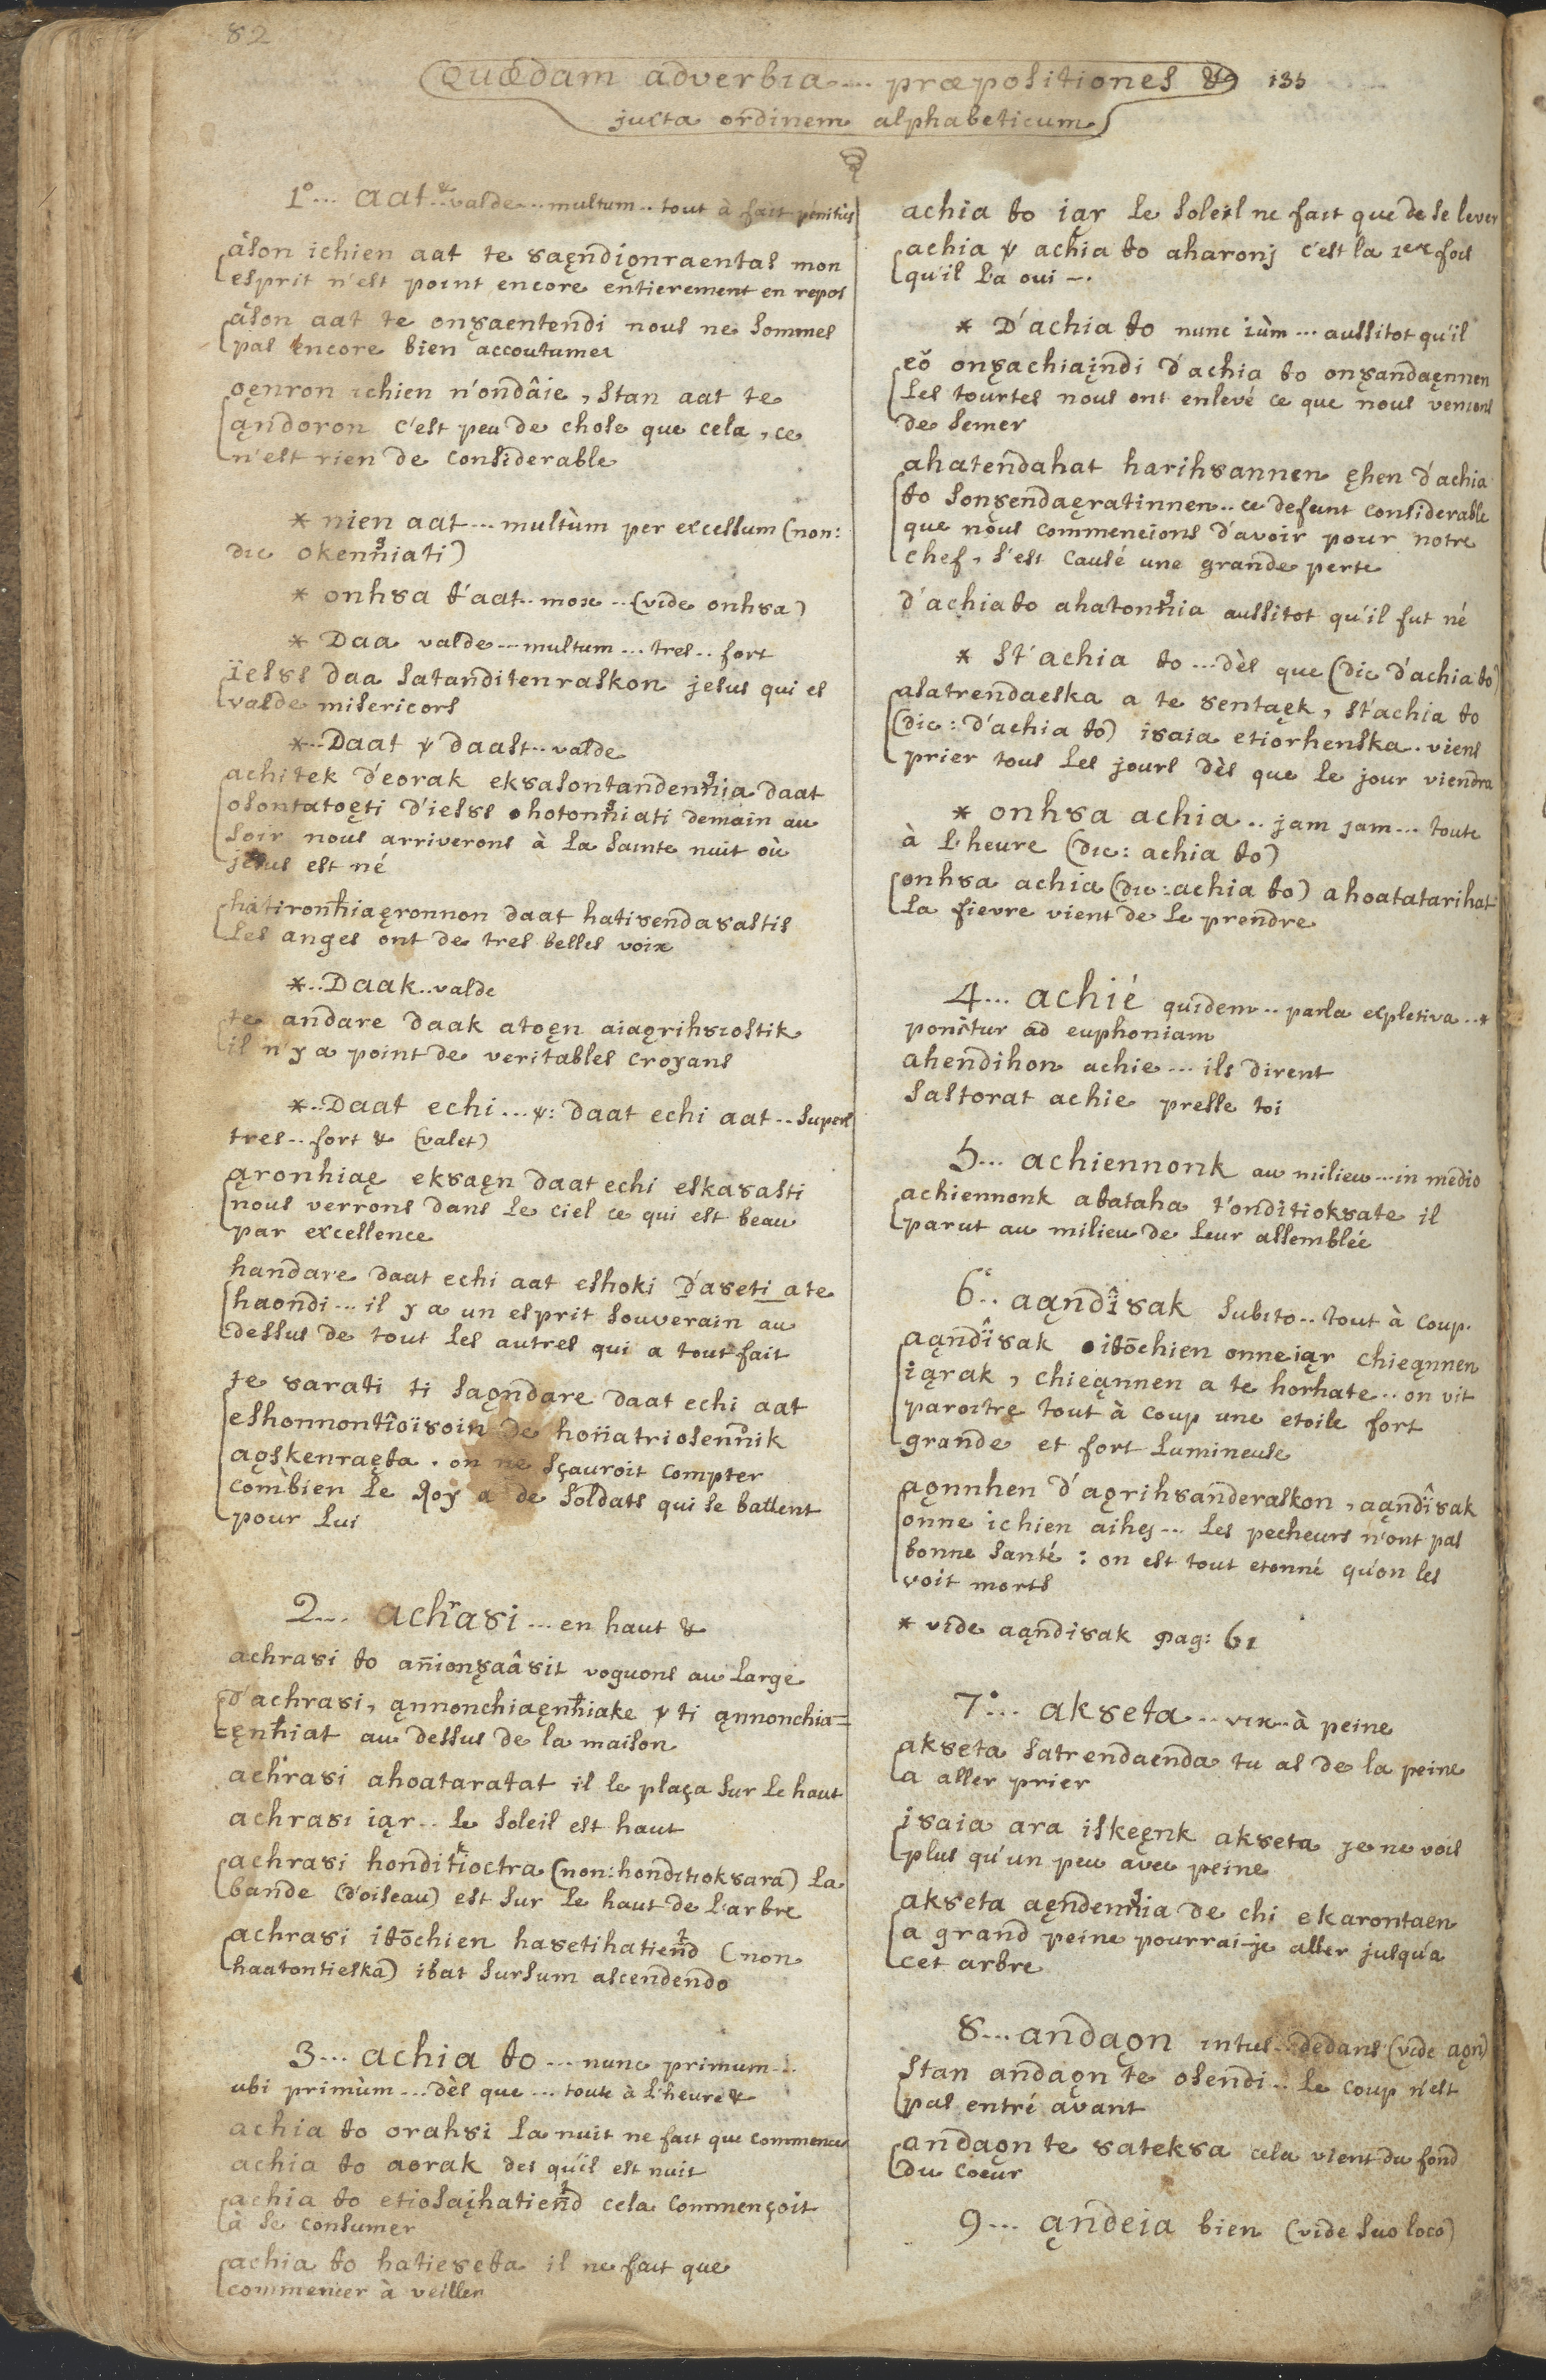 82
Quædam adverbia... præpositiones & 135
juxta ordinem alphabeticum
1° ... aat &.. valde... multum.. tout à fait penitùs
äson ichien aat te ȣaęndiǫnraentas mon
esprit n'est point encore entierement en repos
äson aat te onȣaentendi nous ne sommes
pas encore bien accoutumez
oęnron ichien n'ondâie, stan aat te
ąndoron c'est peu de chose que cela, ce
n'est rien de considerable
* nien aat... multùm per excessum (non:
dic okenńiati)
* onhȣa t'aat.. mox.. (vide onhȣa)
* Daa valde... multum... tres.. fort
ïesȣs daa satanditenraskon jesus qui es
valde misericors
*.. Daat ỽ daast.. valde
achitek d'eorak ekȣasontandenńia daat
osontatoęti d'iesȣs hotonńiati demain au
soir nous arriverons à la sainte nuit où
jesus est né
hatironhiaęronnon daat hatiȣendaȣastis
les anges ont de tres belles voix
*.. Daak.. valde
te andare daak atoęn aiaǫrihȣiostik
il n'y a point de veritables croyans
*.. Daat echi... ỽ: daat echi aat.. supers
tres.. fort & (valet)
ąronhiaę ekȣaęn daat echi eskaȣasti
nous verrons dans le ciel ce qui est beau
par excellence
handare daat echi aat eshoki d'aȣeti ate
haondi... il y a un esprit souverain au
dessus de tout les autres qui a tout fait
te ȣarati ti saǫndare daat echi aat
eshonnontîoïȣoin de honatriosennik
aǫskenraęta. on ne sçauroit compter
combien le Roy a de soldats qui se battent
pour lui
2... achraȣi... en haut &
achraȣi to anionȣaâȣit voguons au large
d'achraȣi, ąnnonchiaęnhiake ỽ ti ąnnonchia=
ęnhiat au dessus de la maison
achraȣi ahoataratat il le plaça sur le haut
achraȣi iąr.. le soleil est haut
achraȣi honditioctra (non: honditiokȣara) la
bande (d'oiseau) est sur le haut de l'arbre
achraȣi itōchien haȣetihatiend (non
haatontieska) ibat sursum ascendendo
3... achia to... nunc primum...
ubi primùm... dès que... toute à l'heure &
achia to orahȣi la nuit ne fait que commencer
achia to aorak des qu'il est nuit
achia to etiosaįhatiend cela commençoit
à se consumer
achia to hatieȣeta il ne fait que
commencer à veiller
achia to iąr le soleil ne fait que de se lever
achia ỽ achia to aharonį c'est la 1ere fois
qu'il l'a oui —.
* D'achia to nunc iùm... aussitot qu'il
eŏ onȣachiaįndi d'achia to onȣandaęnnen
les tourtes nous ont enlevé ce que nous venions
de semer
ahatendahat harihȣannen ęhen d'achia
to sonȣendaęratinnen.. ce defunt considerable
que nous commencions d'avoir pour notre
chef, s'est causé une grande perte
d'achia to ahatonńia aussitot qu'il fut né
* st'achia to... dès que (dic d'achia to)
asatrendaeska a te ȣentaęk, st'achia to
(dic: d'achia to) iȣaia etiorhenska.. viens
prier tous les jours dès que le jour viendra
* onhȣa achia.. jam jam... toute
à l'heure (dic: achia to)
onhȣa achia (dic: achia to) ahoatatarihat
la fievre vient de le prendre
4... achié quidem.. parla expletiva..*
ponitur ad euphoniam
ahendihon achie... ils dirent
sastorat achie presse toi
5... achiennonk au milieu... in medio
achiennonk abataha t'onditiokȣate il
parut au milieu de leur assemblée
6°.. aąndîȣak subito.. tout à coup.
aąndîȣak itōchien onneiąr chieąnnen
iąrak, chieąnnen a te horhate.. on vit
paroitre tout à coup une etoile fort
grande et fort lumineuse
aǫnnhen d'aǫrihȣanderaskon, aąndîȣak
onne ichien aihej... les pecheurs n'ont pas
bonne santé: on est tout etonné qu'on les
voit morts
* vide aąndiȣak pag: 61
7°... akȣeta.. vix.. à peine
akȣeta satrendaenda tu as de la peine
a aller prier
iȣaia ara iskeęnk akȣeta je ne vois
plus qu'un peu avec peine
akȣeta aęndenńia de chi ekarontaen
a grand peine pourrai-je aller jusqu'a
cet arbre
8... andaǫn intus.. dedans (vide aǫn)
stan andaǫn te osendi.. le coup n'est
pas entré avant
andaǫn te ȣatekȣa cela vient du fond
du coeur
9... ąndeia bien (vide suo loco)